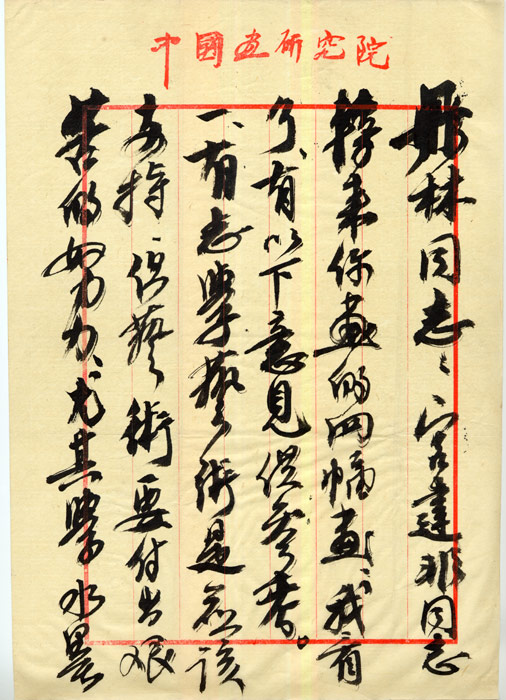 中國画研究院
林同志：宫建非同志
轉来你畫的四幅畫、我看
了、有以下意見供参考。
一、有志學藝術是应該
支持、但藝術要付出艰
苦的努力、尤其學水墨